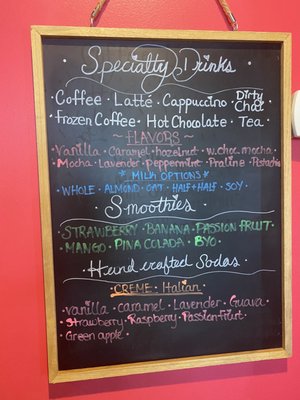 Specialty Drinks
Coffee · Latté · Cappuccino · Dirty Chai
· Frozen Coffee · Hot Chocolate · Tea ·
~ FLAVORS ~
· Vanilla · Caramel · hazelnut · w. choc. mocha
· Mocha · Lavender · Peppermint · Praline · Pistachio
* MILK OPTIONS *
· WHOLE · ALMOND · OAT · HALF+HALF · SOY ·
Smoothies
· STRAWBERRY · BANANA · PASSION FRUIT ·
· MANGO · PINA COLADA · BYO ·
Hand crafted Sodas
· CREME · Italian ·
· Vanilla · Caramel · Lavender · Guava ·
· Strawberry · Raspberry · Passion fruit ·
· Green apple ·